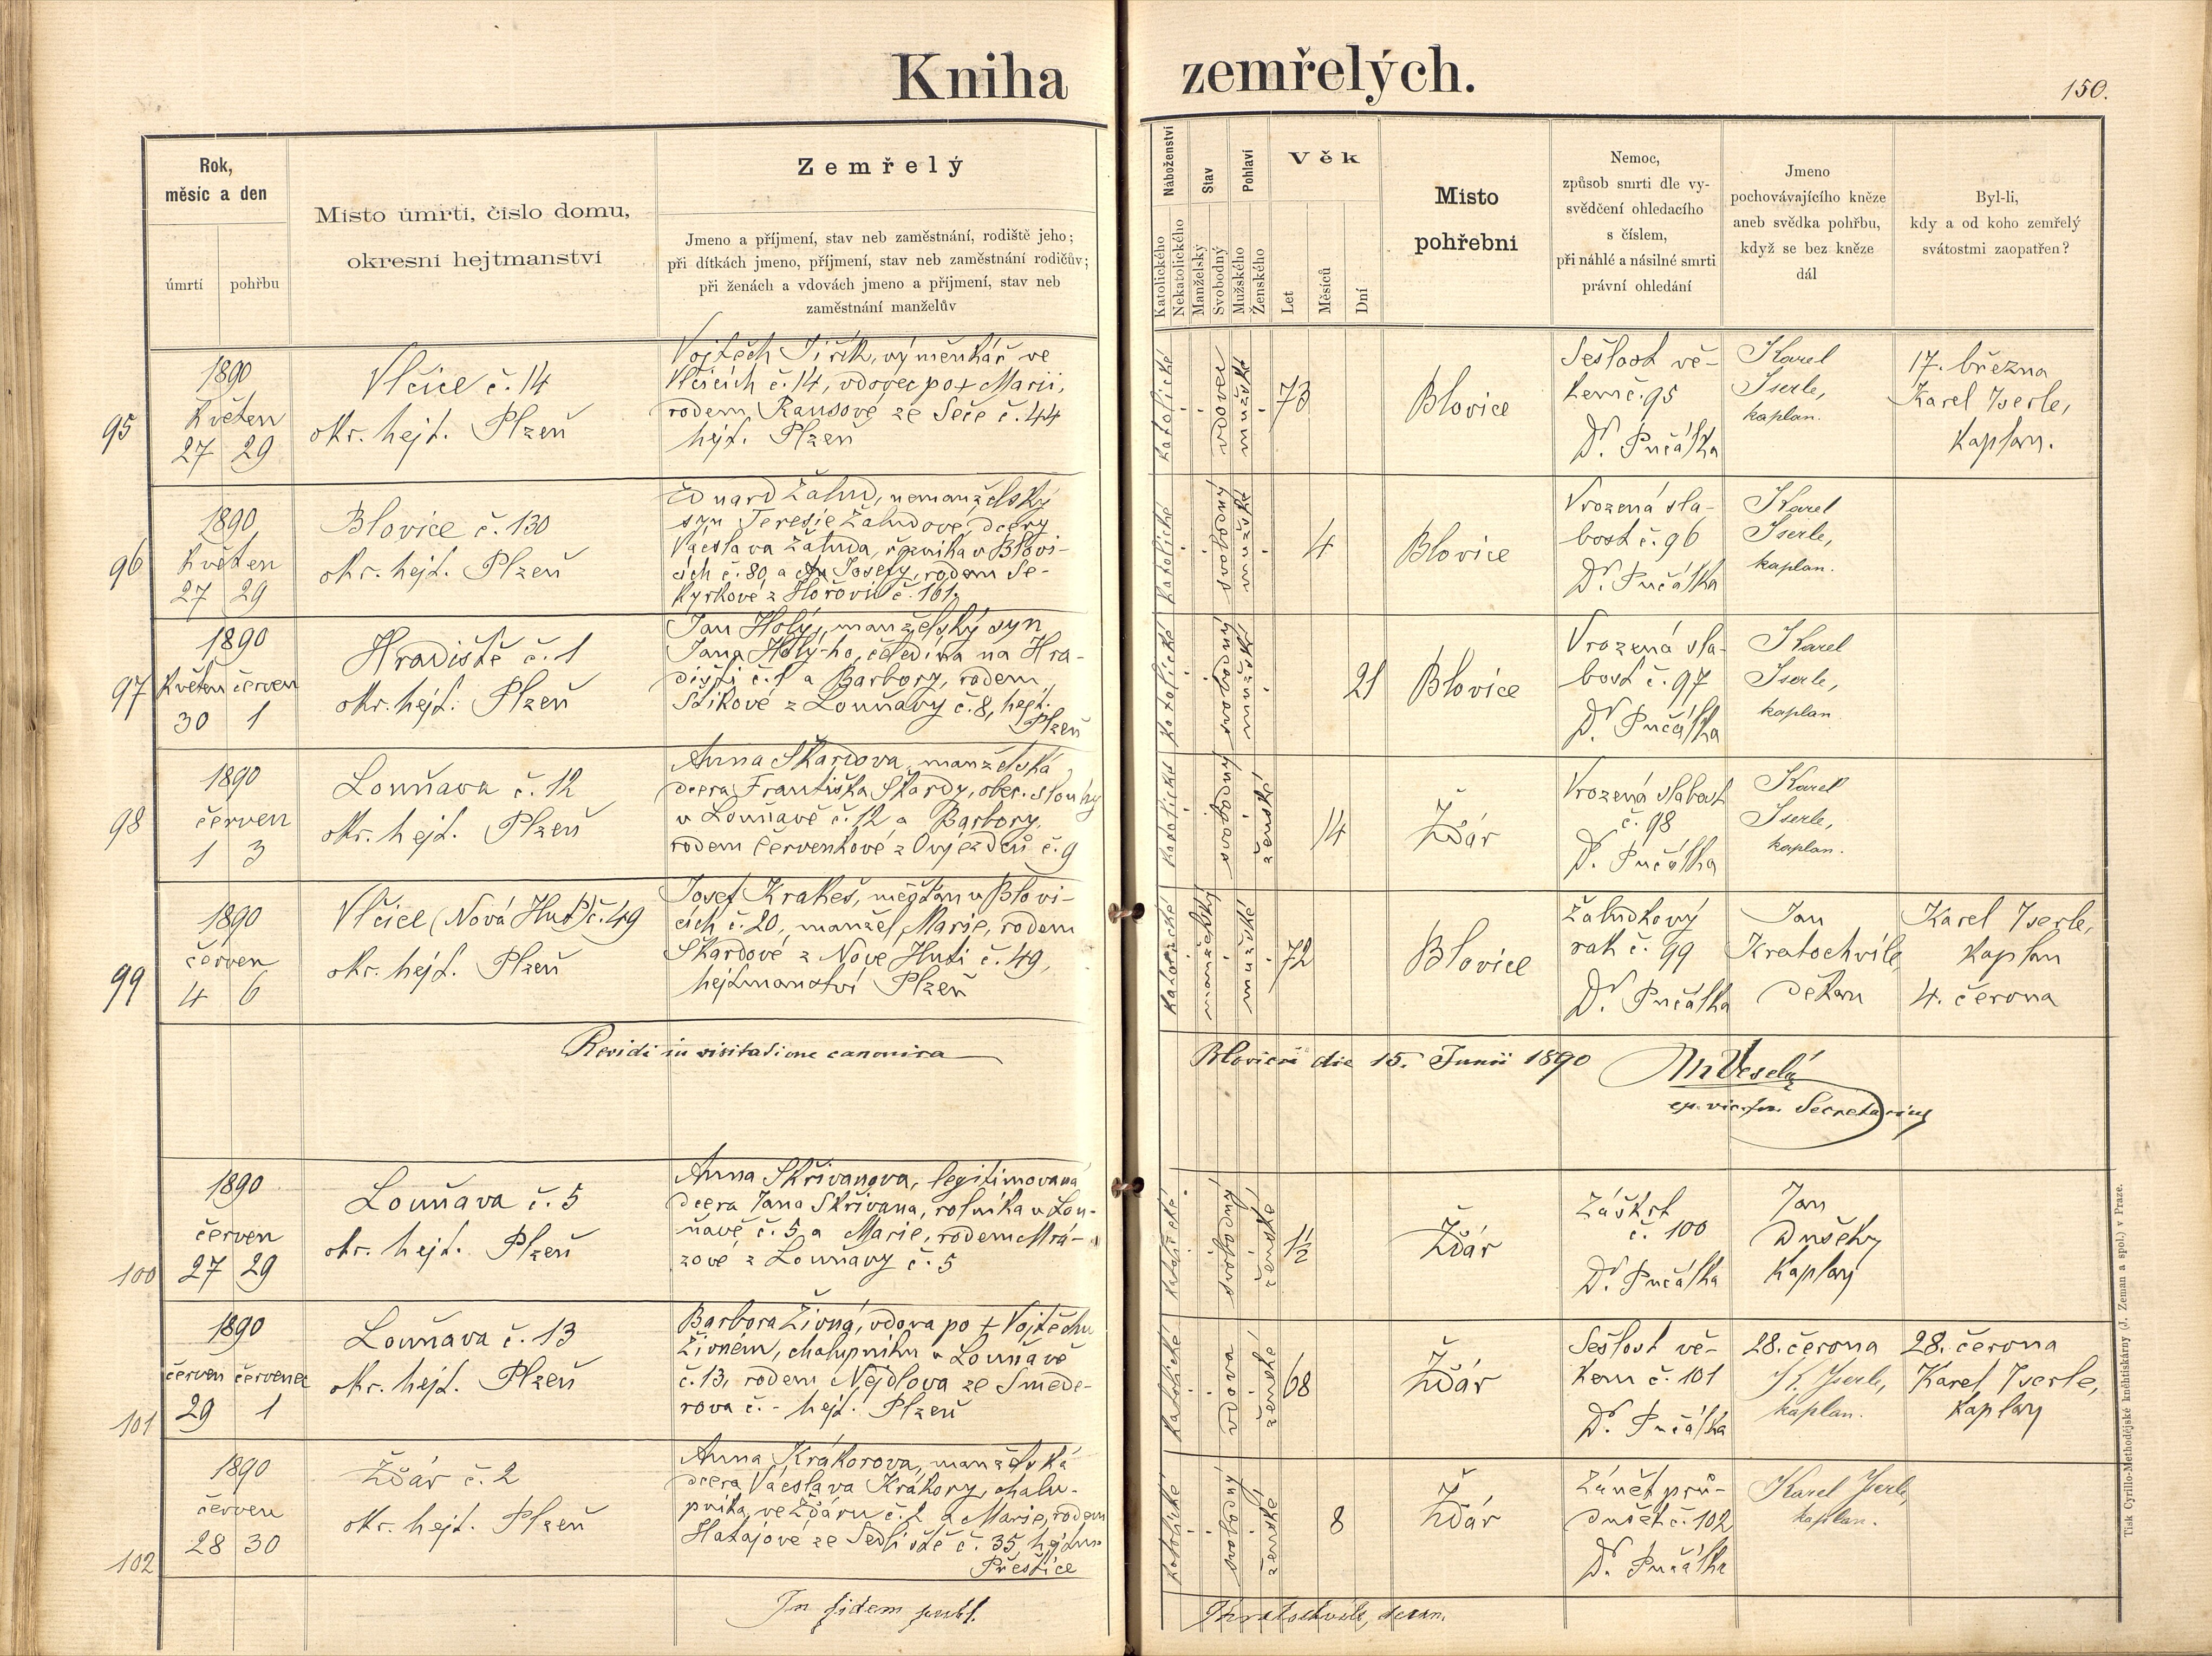 Kniha zemřelých.
150.
Rok,
měsíc a den
úmrtí
pohřbu
Místo úmrtí, číslo domu,
okresní hejtmanství
Zemřelý
Jmeno a příjmení, stav neb zaměstnání, rodiště jeho;
při dítkách jmeno, příjmení, stav neb zaměstnání rodičův;
při ženách a vdovách jmeno a příjmení, stav neb
zaměstnání manželův
Náboženství
Katolického
Nekatolického
Stav
Manželský
Svobodný
Pohlaví
Mužského
Ženského
Věk
Let
Měsíců
Dní
Místo
pohřební
Nemoc,
způsob smrti dle vy-
svědčení ohledacího
s číslem,
při náhlé a násilné smrti
právní ohledání
Jmeno
pochovávajícího kněze
aneb svědka pohřbu,
když se bez kněze
dál
Byl-li,
kdy a od koho zemřelý
svátostmi zaopatřen?
95
1890
Květen
27 29
Vlčice č. 14
okr. hejt. Plzeň
Vojtěch Jiřík, výměnkář ve
Vlčicích č. 14, vdovec po + Marii,
rodem Rausové ze Seče č. 44
hejt. Plzeň
katolické
vdovec
mužské
73
Blovice
Sešlost vě-
kem č. 95
Dr. Pučálka
Karel
Iserle,
kaplan.
17. března
Karel Iserle,
kaplan.
96
1890
Květen
27 29
Blovice č. 130
okr. hejt. Plzeň
Eduard Žalud, nemanželský
syn Teresie Žaludové, dcery
Vácslava Žaluda, řezníka v Blovi-
cích č. 80, a Josefy, rodem Se-
kyrkové z Hořovic č. 161
katolické
svobodný
mužské
4
Blovice
Vrozená sla-
bost č. 96
Dr. Pučálka
Karel
Iserle,
kaplan.
97
1890
Květen červen
30 1
Hradiště č. 1
okr. hejt. Plzeň
Jan Holý, manželský syn
Jana Holý-ho, čeledína na Hra-
dišti č. 1 a Barbory, rodem
Štikové z Louňavy č. 8, hejt.
Plzeň
katolické
svobodný
mužské
21
Blovice
Vrozená sla-
bost č. 97
Dr. Pučálka
Karel
Iserle,
kaplan
98
1890
červen
1 3
Louňava č. 12
okr. hejt. Plzeň
Anna Škardova, manželská
dcera Františka Škardy, obec. slouhy
v Louňavě č. 12 a Barbory,
rodem Červenkové z Ovjezdců č. 9
katolické
svobodný
ženské
14
Žďár
Vrozená slabost
č. 98
Dr. Pučálka
Karel
Iserle,
kaplan.
99
1890
červen
4 6
Vlčice (Nová Huť) č. 49
okr. hejt. Plzeň
Josef Krakeš, měšťan v Blovi-
cích č. 20, manžel Marie, rodem
Škardové z Nové Huti č. 49,
hejtmanství Plzeň
katolické
manželský
mužské
72
Blovice
Žaludkový
rak č. 99
Dr. Pučálka
Jan
Kratochvíle,
děkan
Karel Iserle,
kaplan
4. června
Revidi in visitatione canonica
Blovicii die 15. Junii 1890
Veselý
ep. vic. for. Secretarius
100
1890
červen
27 29
Louňava č. 5
okr. hejt. Plzeň
Anna Skřivanova, legitimovaná
dcera Jana Skřivana, rolníka v Lou-
ňavě č. 5 a Marie, rodem Mrá-
zové z Louňavy č. 5
katolické
svobodný
ženské
1½
Žďár
Záškrt
č. 100
Dr. Pučálka
Jan
Dušek,
kaplan
101
1890
červen červenec
29 1
Louňava č. 13
okr. hejt. Plzeň
Barbora Živná, vdova po + Vojtěchu
Živném, chalupníku v Louňavě
č. 13, rodem Nejdlova ze Smede-
rova č. - hejt. Plzeň
katolické
vdova
ženské
68
Žďár
Sešlost vě-
kem č. 101
Dr. Pučálka
28. června
K. Iserle,
kaplan.
28. června
Karel Iserle,
kaplan
102
1890
červen
28 30
Žďár č. 2
okr. hejt. Plzeň
Anna Krákorova, manželská
dcera Vácslava Krákory, chalu-
pníka, ve Žďáru č. 2 a Marie, rodem
Hatajové ze Sedliště č. 35, hejtm.
Přeštice
katolické
svobodný
ženské
8
Žďár
Zánět prů-
dušek č. 102
Dr. Pučálka
Karel Iserle,
kaplan.
In fidem publ.
J Kratochvíle, decan.
Tisk Cyrillo-Methodějské knihtiskárny (J. Zeman a spol.) v Praze.